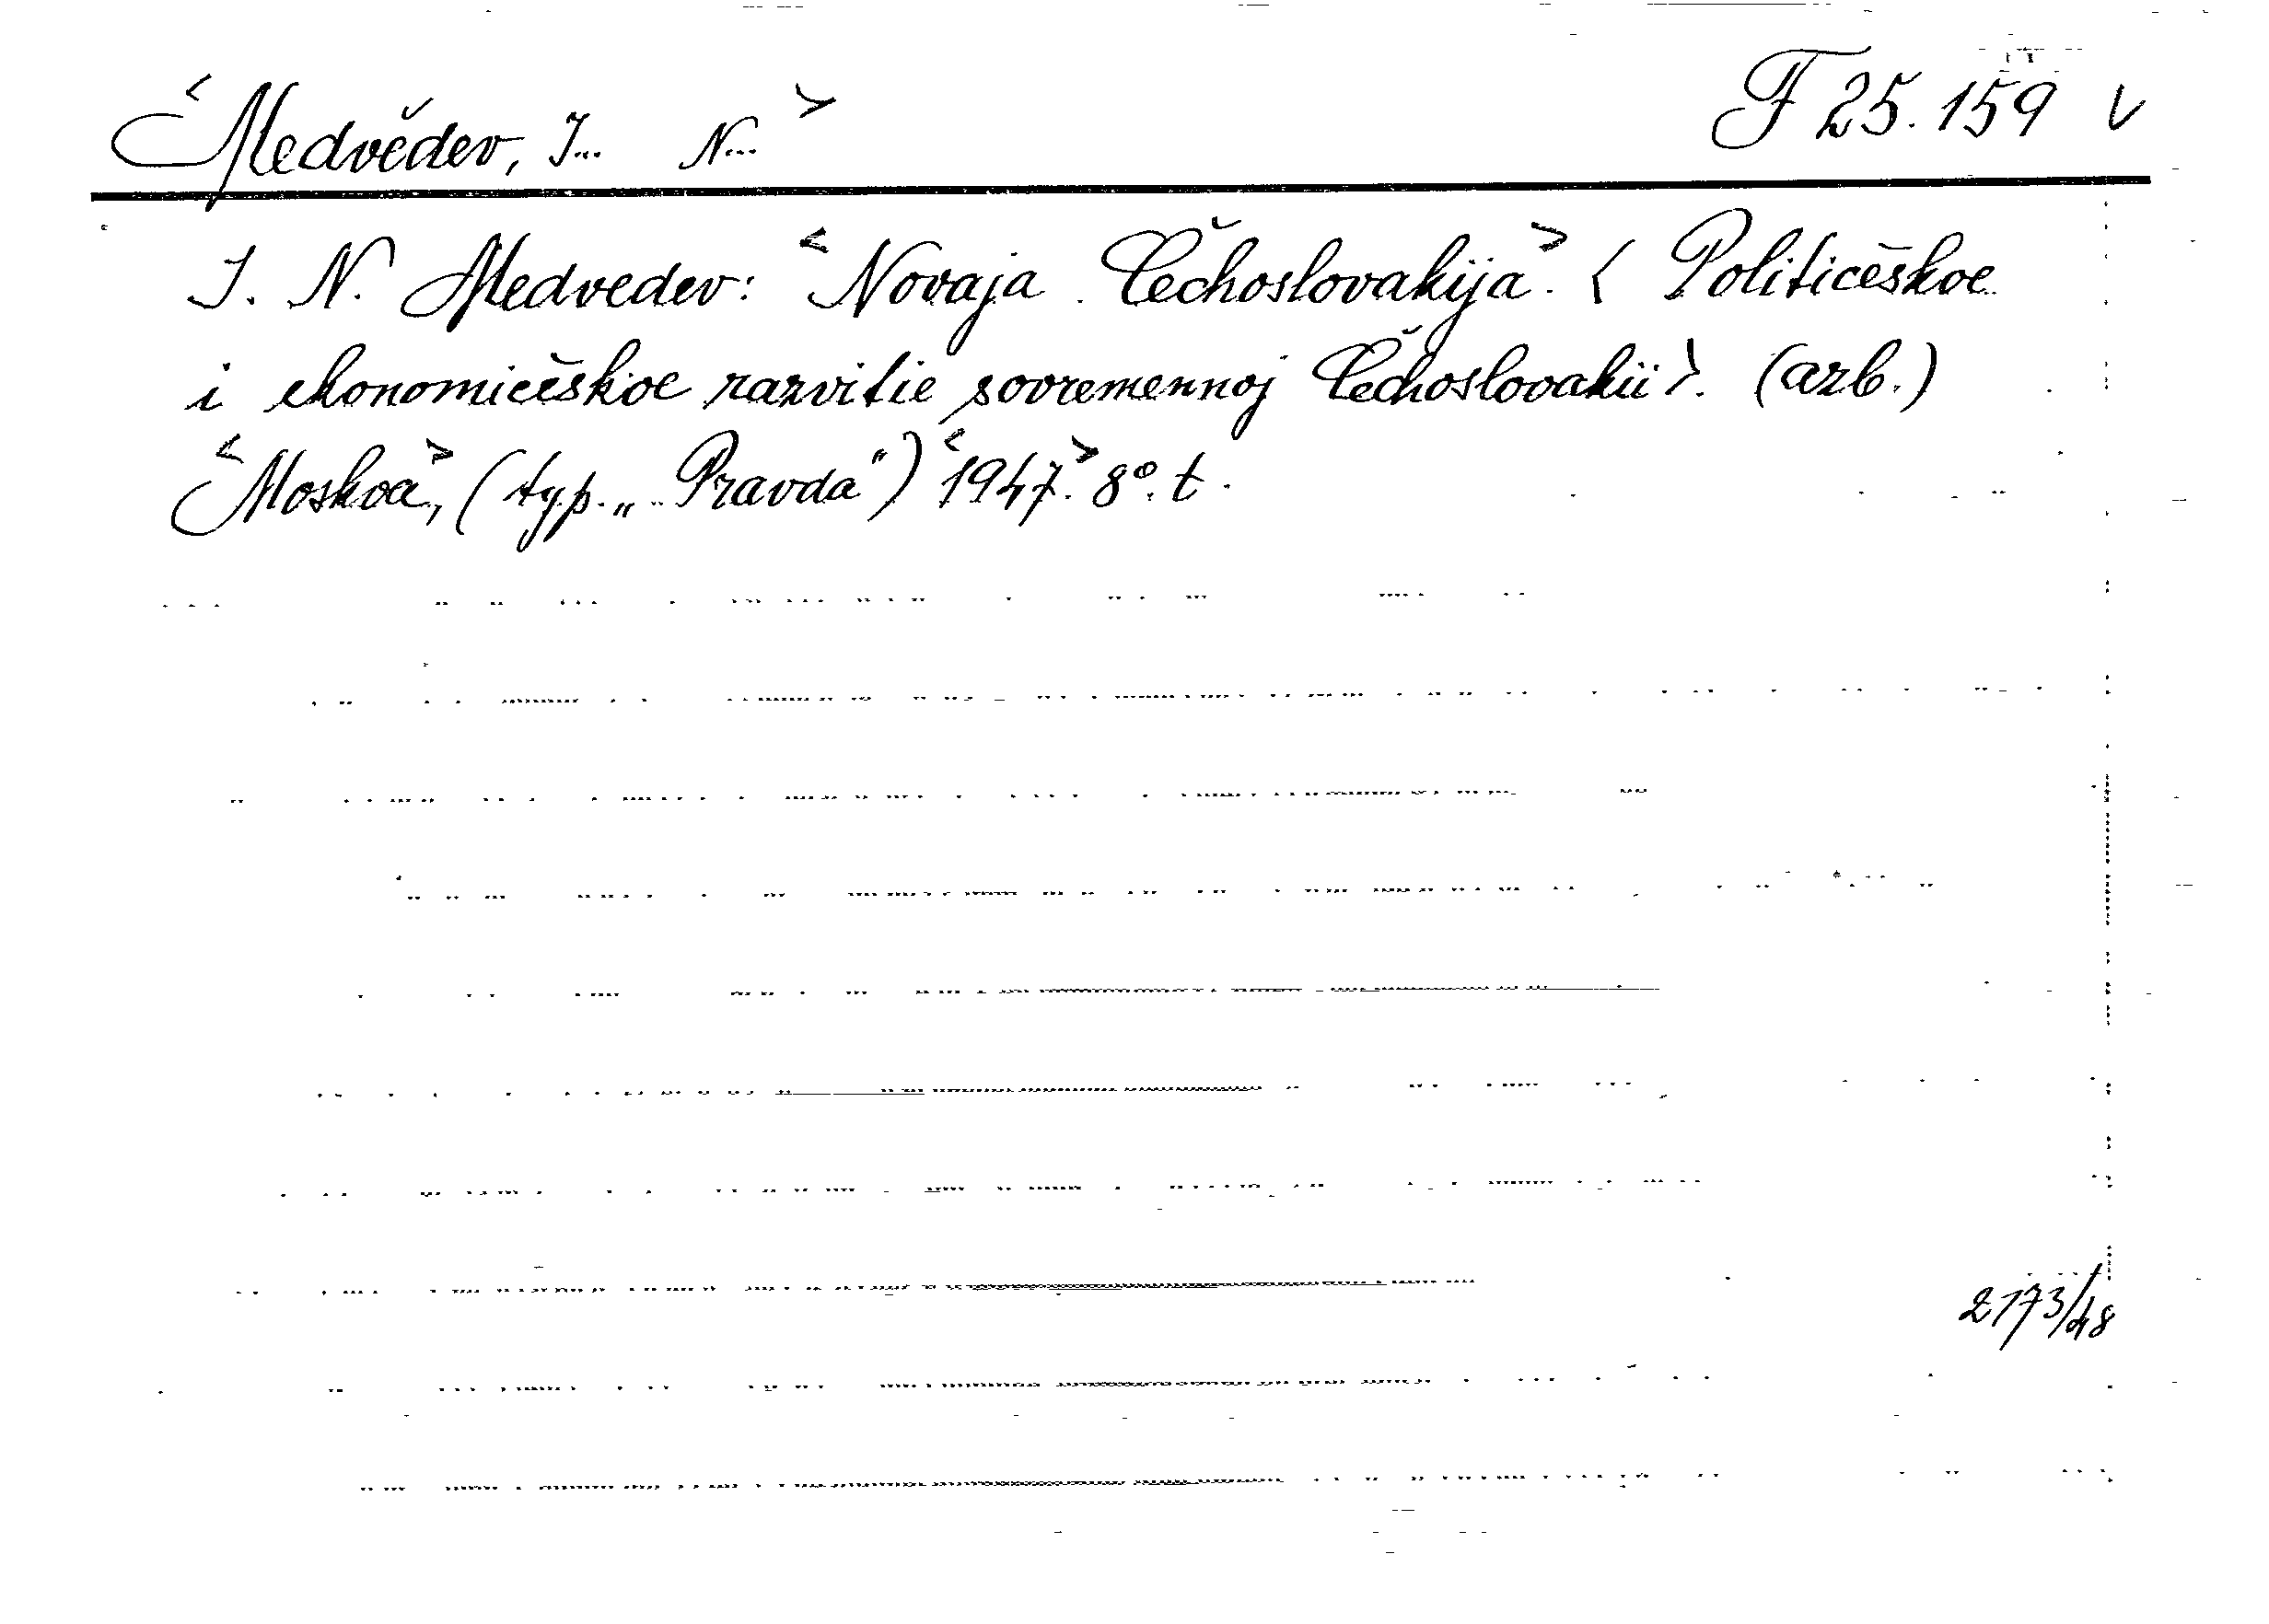 <Medvědev, I... N...> F 25.159 V
I. N. Medvedev: <Novaja Čechoslovakija>. (Politiceškoe
i ekonomiceškoe razvitie sovremennoj Čechoslovakii). (azb.)
<Moskva>, (typ. „Pravda") <1947.> 8°. t.
2173/48